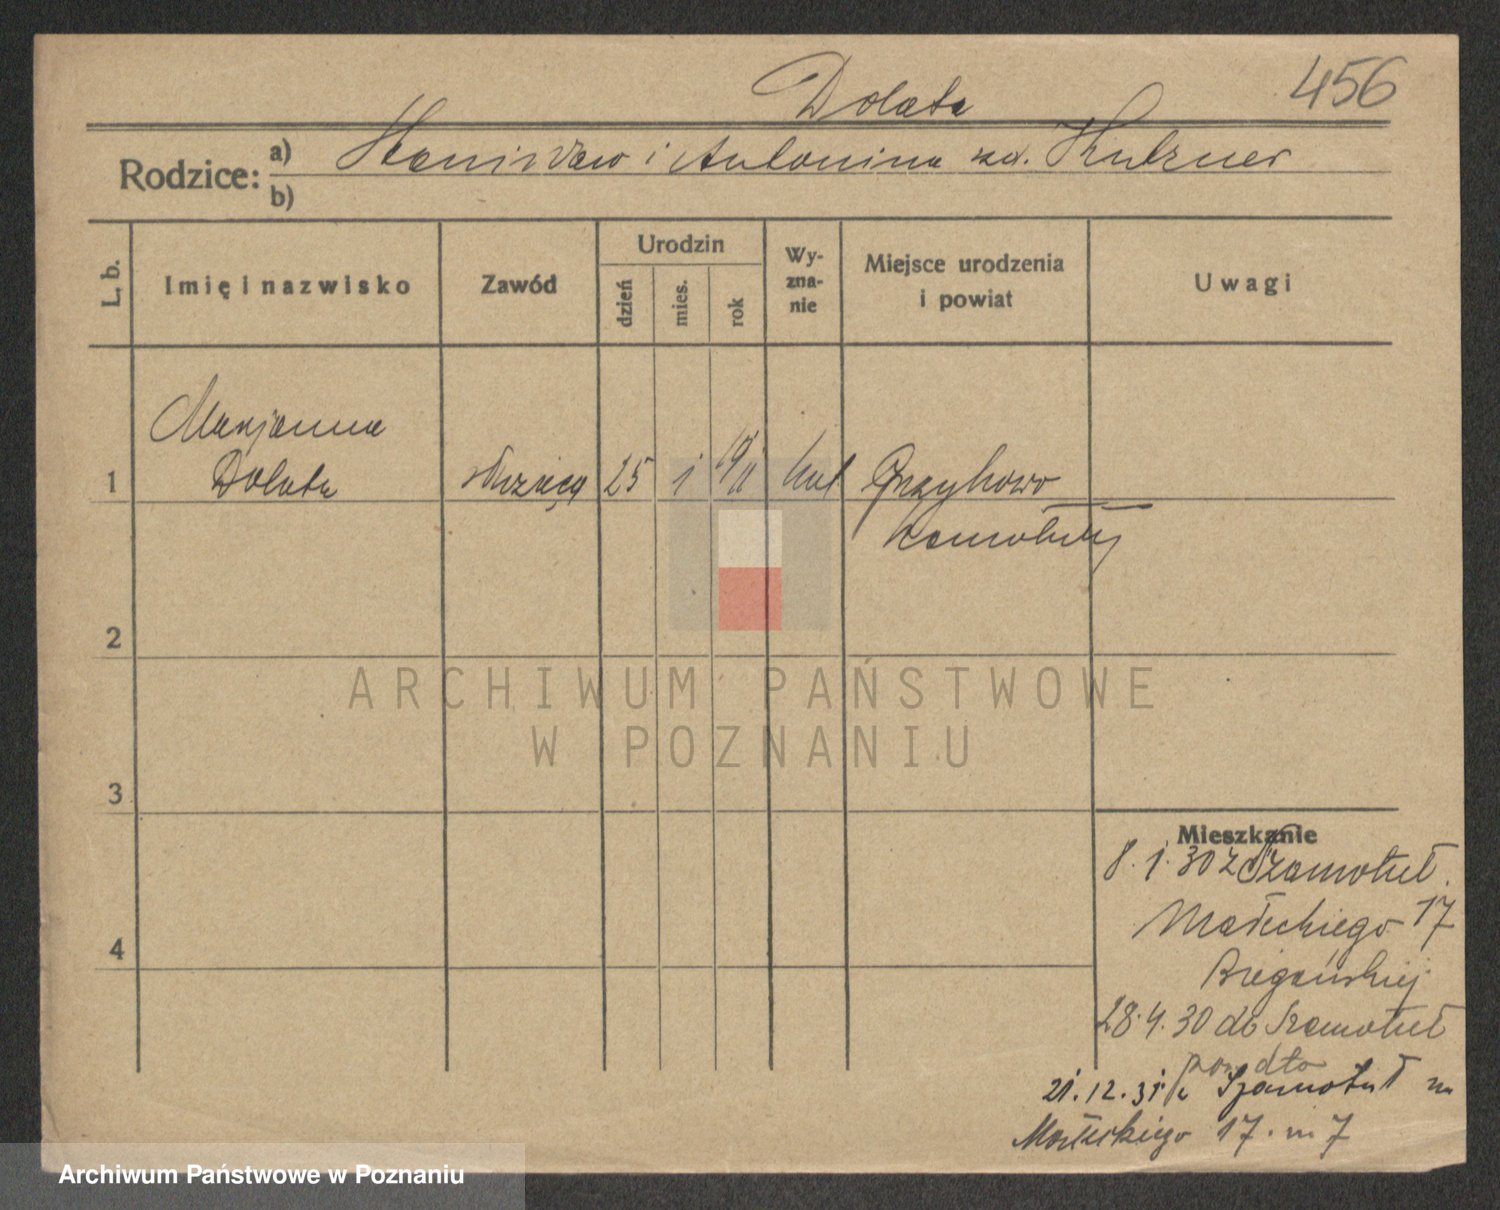 Dolata 456
Rodzice: a) Stanisław i Antonina zd. Kutzner
b)
L. b. Imię i nazwisko Zawód Urodzin dzień mies. rok Wy-zna-nie Miejsce urodzenia i powiat Uwagi
Marjanna
1 Dolata służąca 25 1 11 kat Przyborowo
Szamotuły
2
3
4
Mieszkanie
8.1.30 z Szamotuł.
Małeckiego 17
28.4.30 do Szamotuł
pow dto
21.12.31 z Szamotuł na
Małeckiego 17. m 7
ARCHIWUM PAŃSTWOWE
W POZNANIU
Archiwum Państwowe w Poznaniu